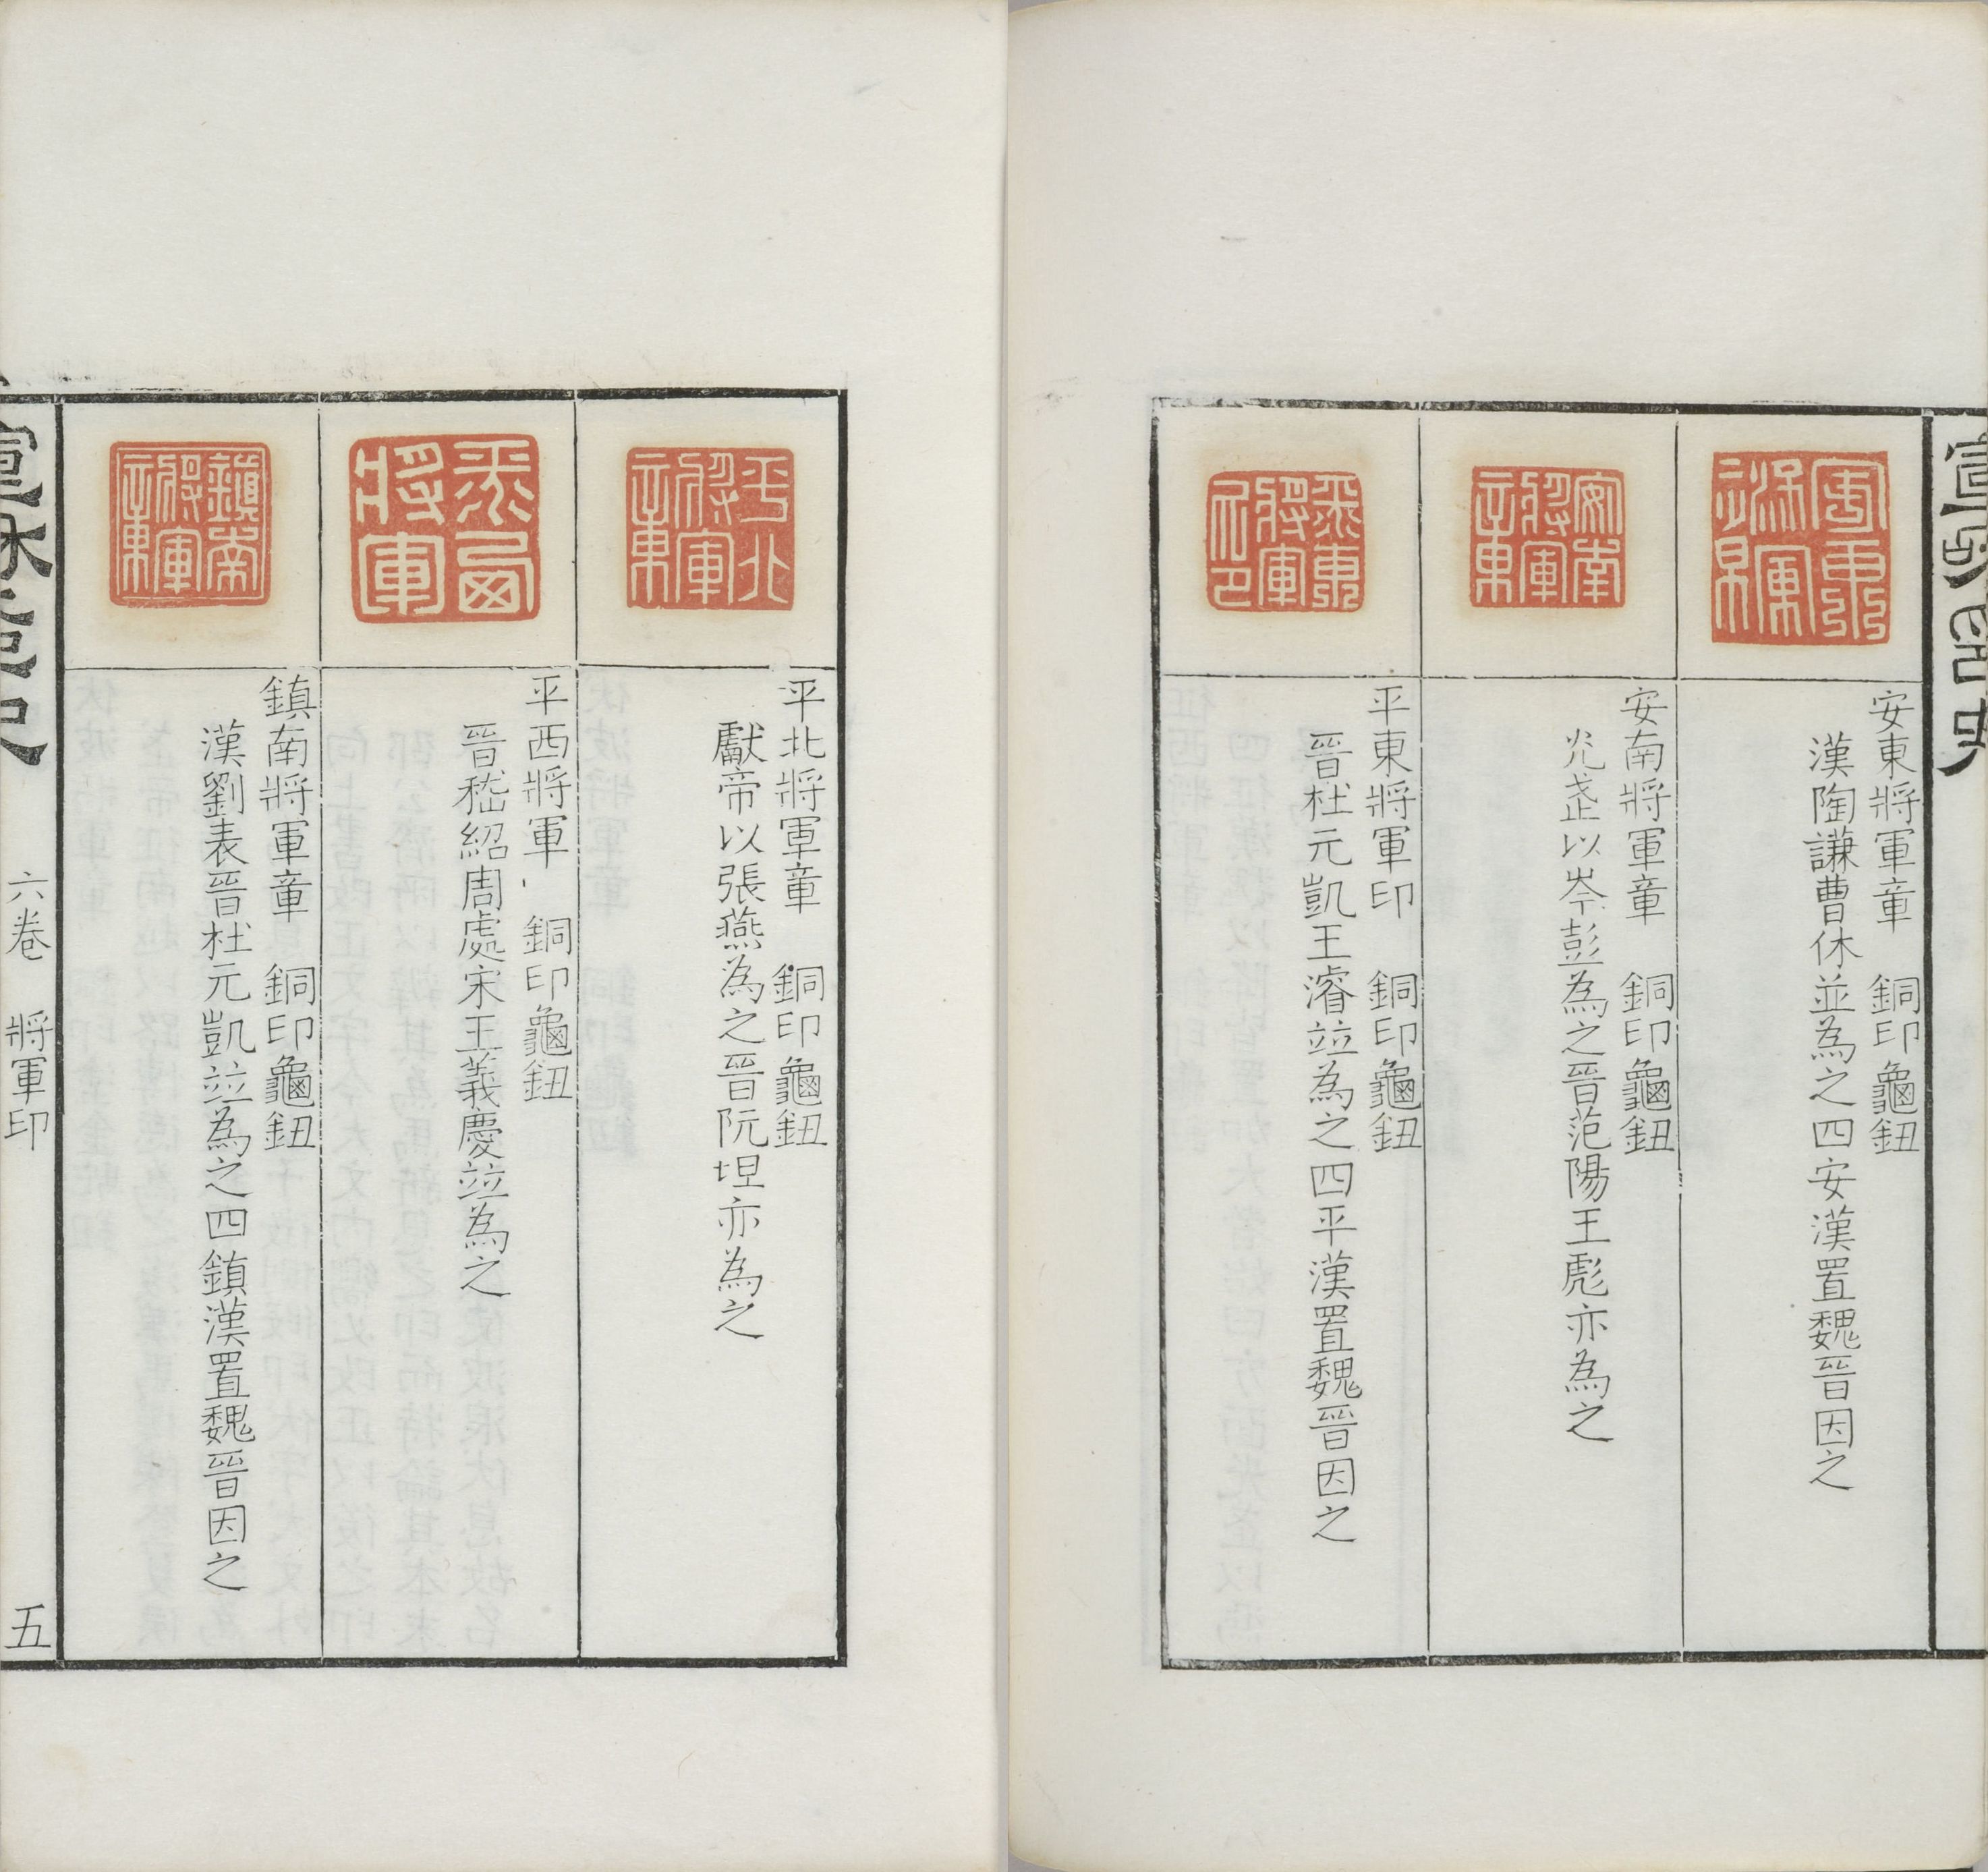 安東將軍章　銅印龜鈕
漢陶謙曹休並為之四安漢置魏晉因之
安南將軍章　銅印龜鈕
以岑彭為之晉范陽王彪亦為之
平東將軍印　銅印龜鈕
晉杜元凱王濬竝為之四平漢置魏晉因之
平北將軍章　銅印龜鈕
獻帝以張燕為之晉阮坦亦為之
平西將軍　銅印龜鈕
晉嵇紹周處宋王義慶竝為之
鎮南將軍章　銅印龜鈕
漢劉表晉杜元凱竝為之四鎮漢置魏晉因之
六卷　將軍印
五